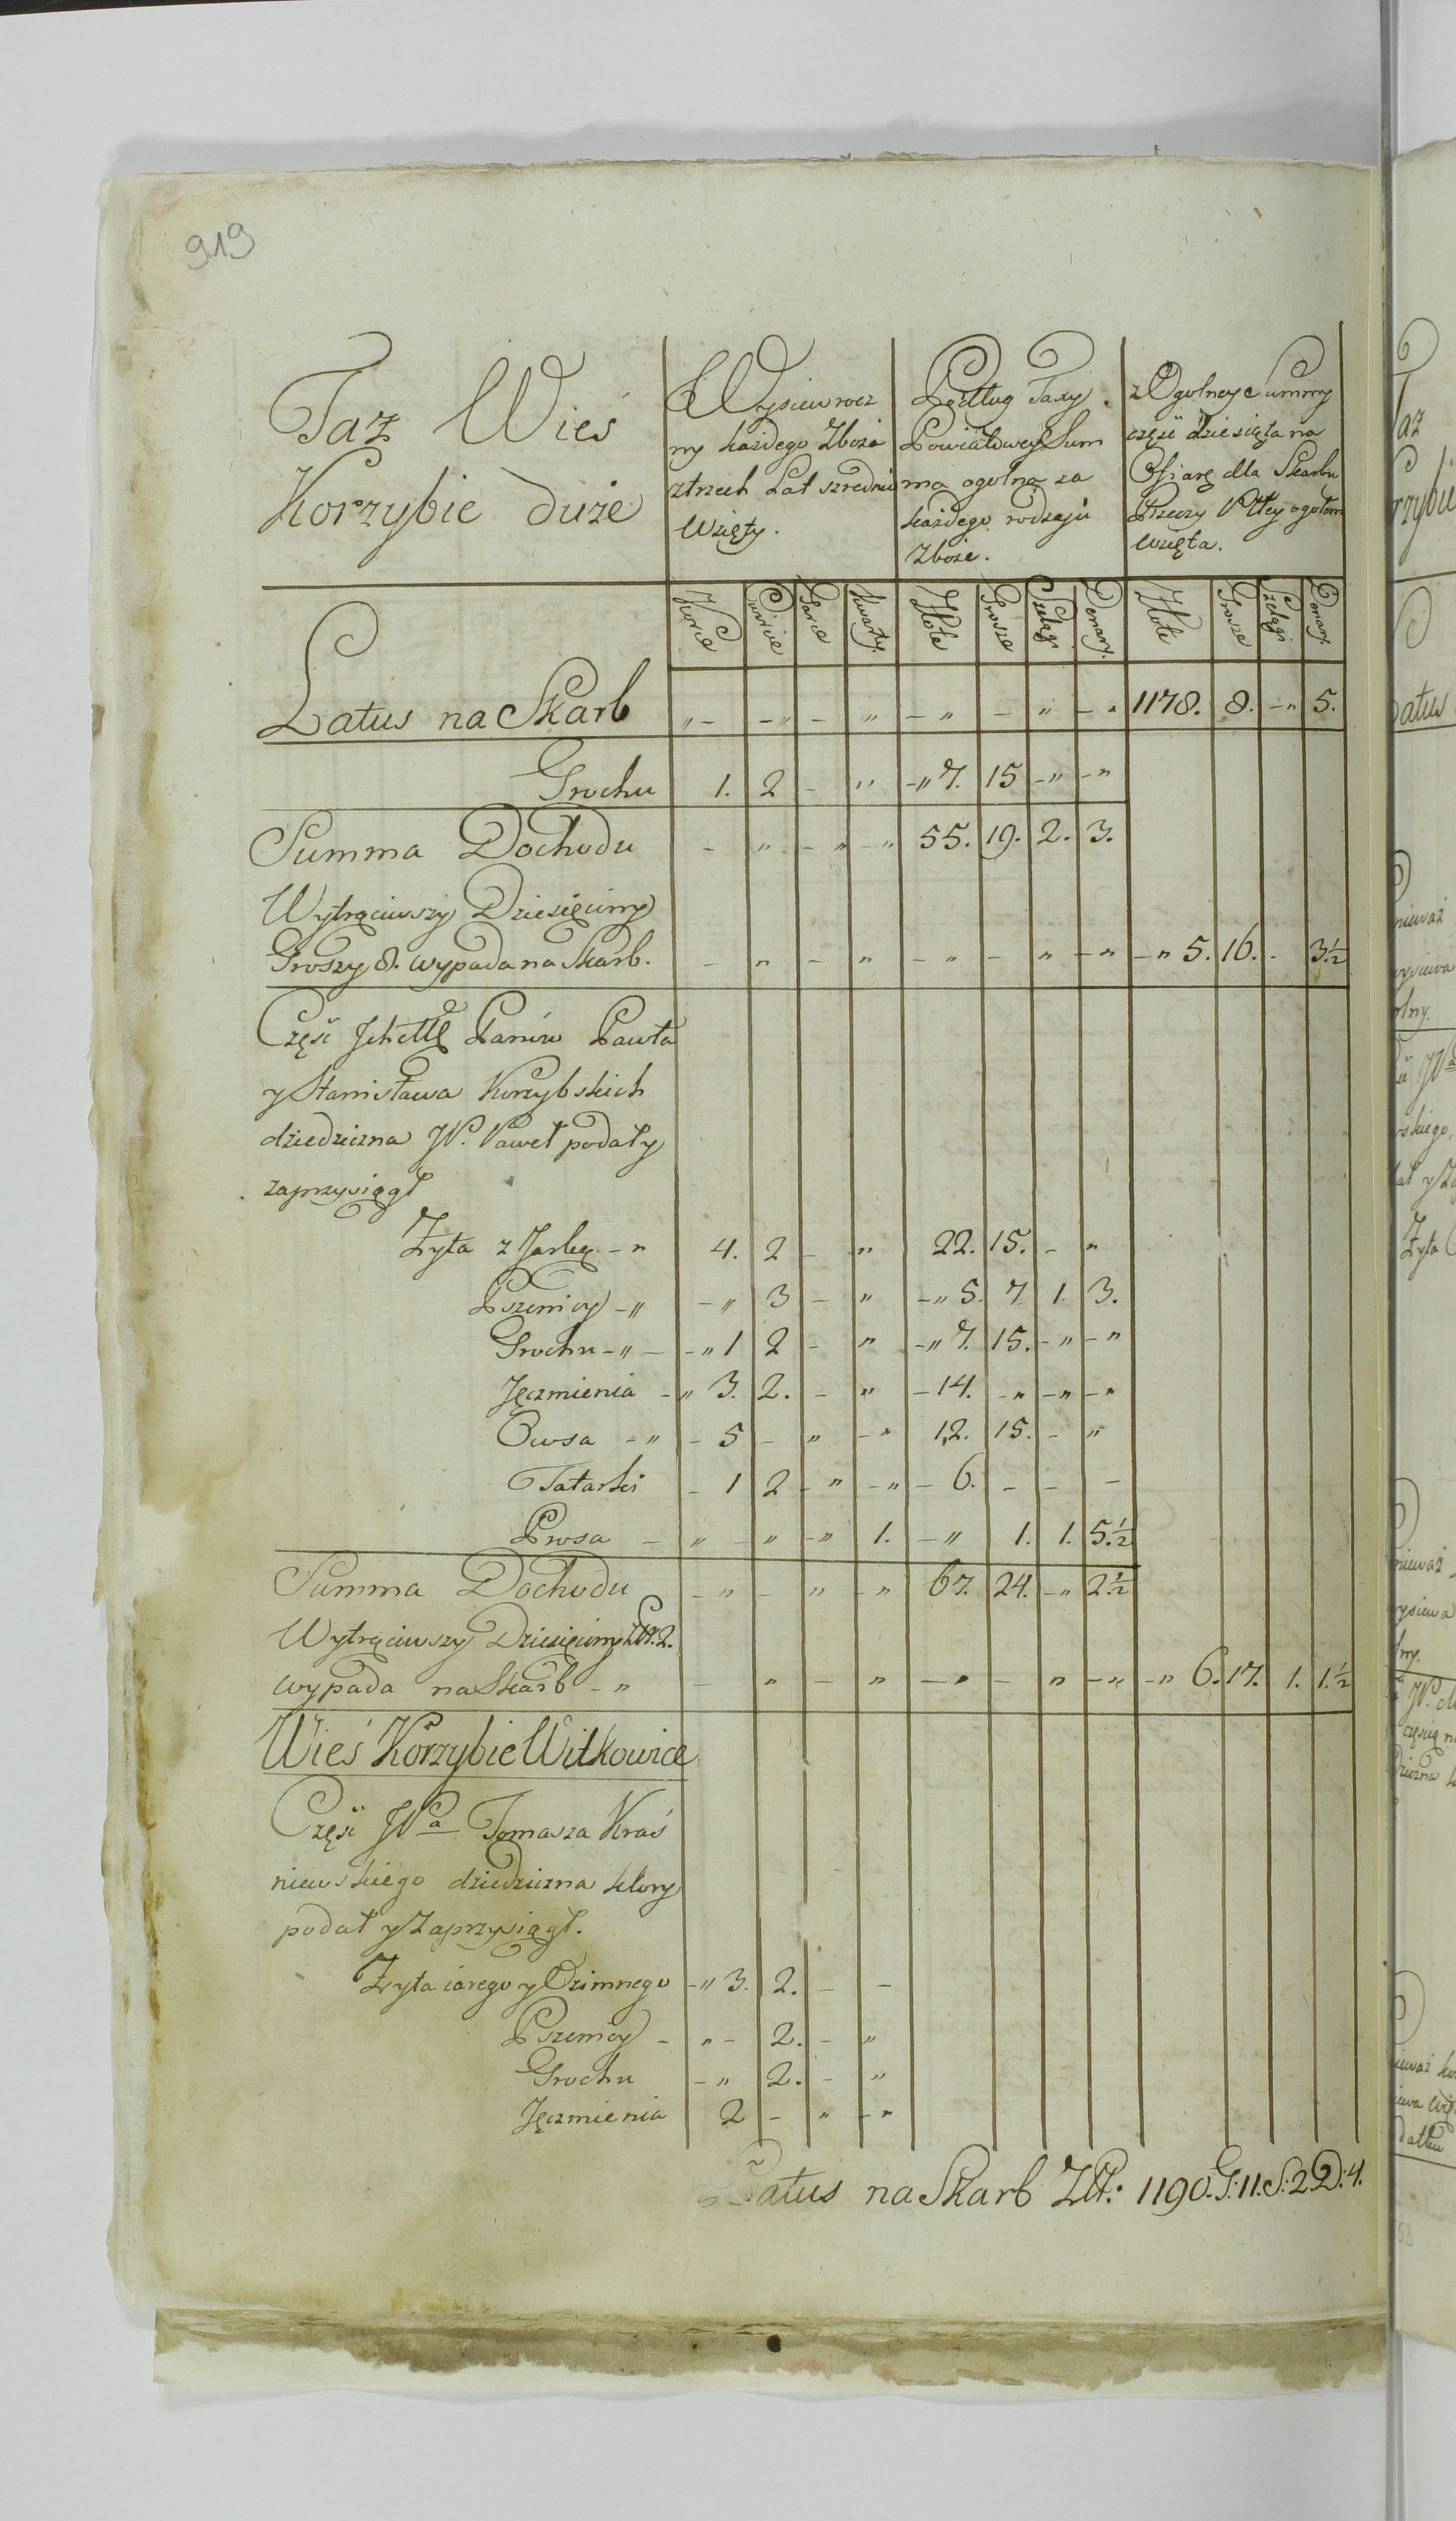 919
Taż Wieś
Korzybie duże
Wysiew rocz
ny każdego Zboża
z trzech Lat szrednio
wzięty.
Podług Taxy
Powiatowey Sum
ma ogolna za
każdego rodzaju
Zboże.
z Ogolney Summy
częśc dziesięta na
Ofiarę dla Skarbu
Rzeczy Pltey ogołem
wzięta.
Korce Cwiercie Garce Kwarty. Złote Grosze Szelągi Denary. Złote Grosze Szelągi Denary.
Latus na Skarb „ - - „ - „ - „ - „ - „ 1178. 8. - „ 5.
Grochu 1. 2 - „ - „ 7. 15 - „ - „
Summa Dochodu - „ - „ - „ 55. 19. 2. 3.
Wytrąciwszy Dziesięciny
Groszy 8. wypada na Skarb. - „ - „ - „ - „ - „ - „ 5. 16. - 3.½
Częśc Panów Pawła
y Stanisława Korzybskich
dziedziczna JP. Paweł podał y
zaprzysiągł
Żyta z Jarką - „ 4. 2 - „ 22. 15. - „
Pszenicy - „ - „ 3 - „ - „ 5. 7. 1. 3.
Grochu - „ - - „ 1 2 - „ - „ 7. 15. - „ - „
Jęczmienia - „ 3. 2. - „ - 14. - „ - „ - „
Owsa - „ - 5 - „ - „ 12. 15. - „
Tatarki - 1 2 - „ - „ - 6. - - -
Prosa - „ - „ - „ 1. - „ 1. 1. 5.½
Summa Dochodu - „ - „ - „ 67. 24. - „ 2½
Wytrąciwszy Dziesięciny Złt. 2.
wypada na Skarb - „ - „ - „ - „ - „ - „ - „ 6. 17. 1. 1.½
Wieś Korzybie Witkowice
Częśc JPa Tomasza Kraś
niewskiego dziedziczna ktory
podał y zaprzysiągł.
Żyta iarego y Ozimnego - „ 3. 2. - -
Pszenicy - „ - 2. - „
Grochu - „ 2. - „
Jęczmienia 2 - „ - „
Latus na Skarb Złt: 1190. G: 11. S: 2. D: 4.